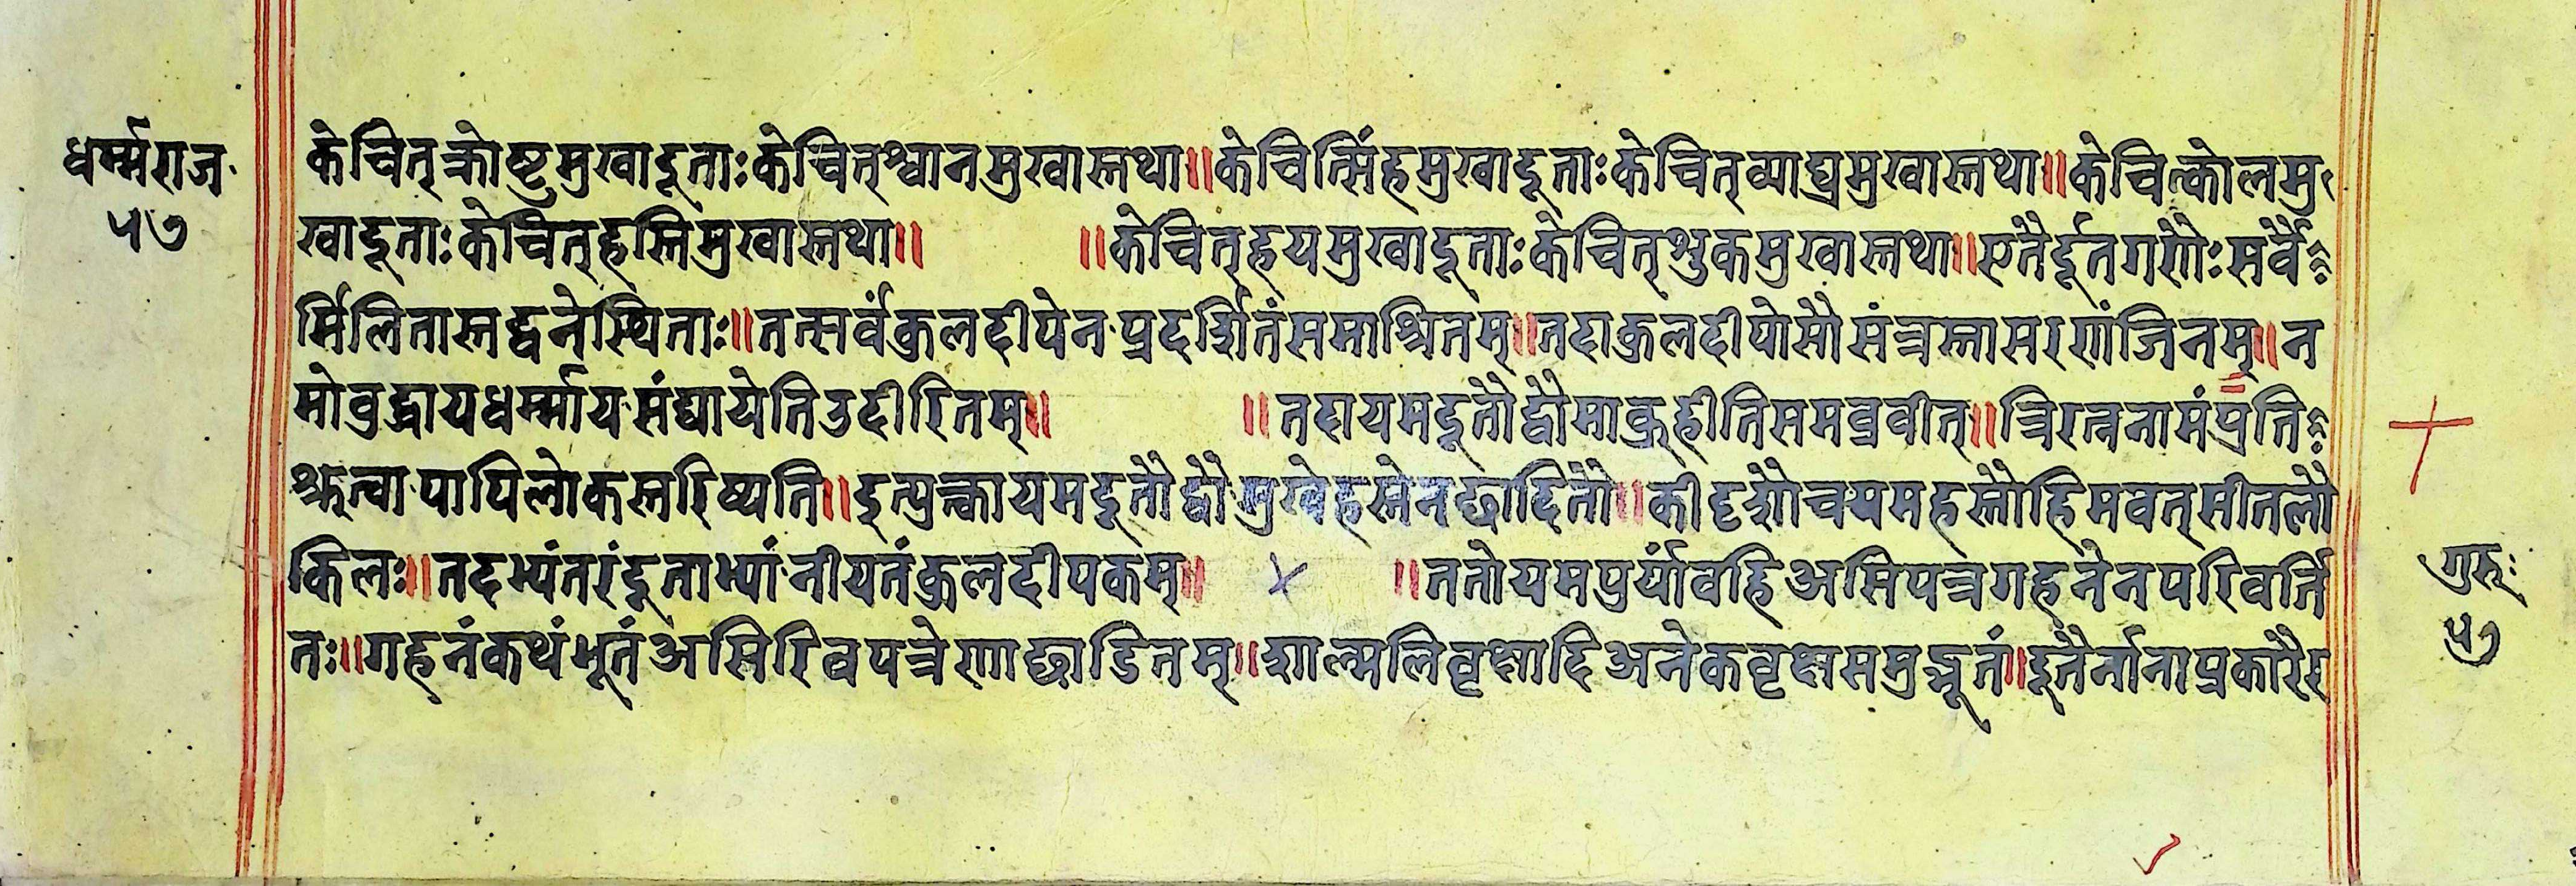 धर्म्मराज
५७
केचित्क्रोष्टुमुखादूताःकेचित्श्वानमुखास्तथा॥केचित्सिंहमुखादूताःकेचित्व्याघ्रमुखास्तथा॥केचित्कोलमु
खादूताःकेचित्हस्तिमुखास्तथा॥ ॥केचित्हयमुखादूताःकेचित्शुकमुखास्तथा॥एतैर्दूतगणैःसर्वै
र्मिलितास्तद्वनेस्थिताः॥तत्सर्वंकुलदीपेनप्रदर्शितंसमाश्रितम्॥तदाकुलदीपोसौसंत्रस्तासरणंजिनम्॥न
मोबुद्धायधर्म्मायसंघायेतिउदीरितम्॥ ॥तदायमदूतौद्वौमाब्रूहीतिसमब्रवीत्॥त्रिरत्ननामंप्रति
श्रूत्वापापिलोकस्तरिष्यति॥इत्युक्त्वायमदूतौद्वौमुखेहस्तेनछादितौ॥कीदृशौचयमहस्तौहिमवत्सीतलौ
किलः॥तदभ्यंतरंदूताभ्यांनीयतंकुलदीपकम्॥ ॥ततोयमपुर्यांवहिअसिपत्रगहनेनपरिवर्ति
तः॥गहनंकथंभूतंअसिरिवपत्रेणाछाडितम्॥शाल्मलिवृक्षादिअनेकवृक्षसमुद्भूतं॥दूतैर्नानाप्रकारै
गुरुः
५७